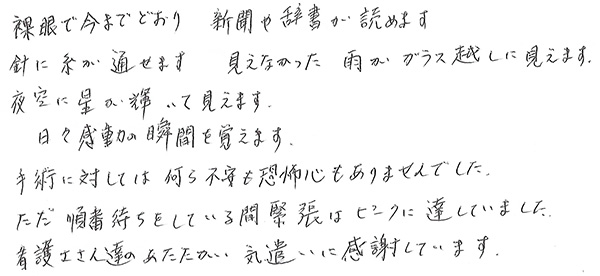 裸眼で今までどおり　新聞や辞書が読めます
針に糸が通せます　見えなかった　雨が　ガラス越しに見えます.
夜空に星が輝いて見えます.
日々感動の瞬間を覚えます.
手術に対しては　何ら不安も恐怖心もありませんでした.
ただ　順番待ちをしている間緊張はピークに達していました.
看護士さん達のあたたかい　気遣いに感謝しています.